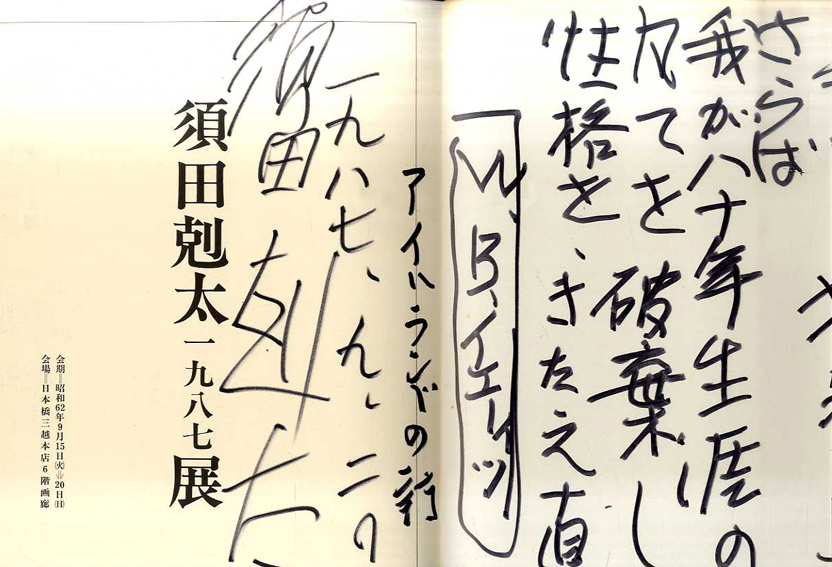 さらば
我が八十年生涯の
凡てを破棄し
性格を、きたえ直
W、B、イエーツ
アイルランドの詩
一九八七、九、二〇
須田剋太
須田剋太一九八七展
会期=昭和62年9月15日㈫⇨20日㈰
会場=日本橋三越本店6階画廊